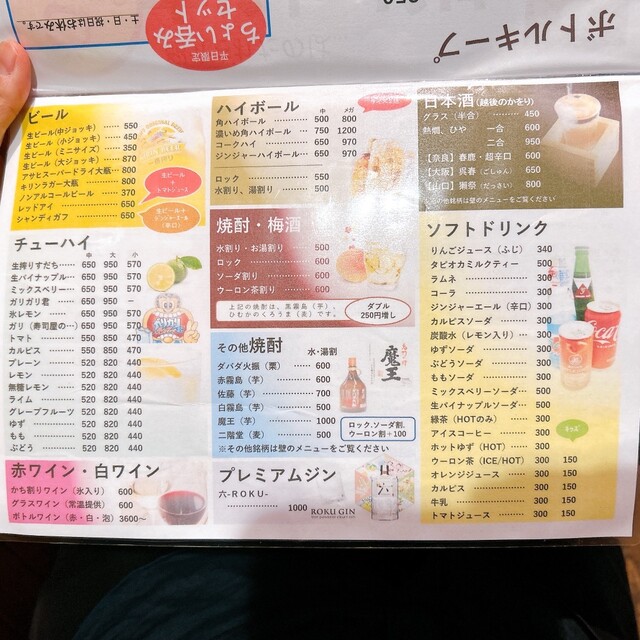 ボトルキープ
平日限定
ちょい呑み
セット
土・日・祝日はお休みです。
ビール
生ビール(中ジョッキ) ……… 550
生ビール(小ジョッキ) ……… 450
生ビール(ミニサイズ) ……… 350
生ビール(大ジョッキ) ……… 870
アサヒスーパードライ大瓶… 800
キリンラガー大瓶 ……… 800
ノンアルコールビール ……… 370
レッドアイ ……… 650
シャンディガフ ……… 650
生ビール
+
トマトジュース
生ビール+
ジンジャーエール
(辛口)
チューハイ
中 大 小
生搾りすだち… 650 950 570
生パイナップル… 650 950 570
ミックスベリー… 650 950 570
ガリガリ君 … 650 950 ー
氷レモン … 650 950 570
ガリ(寿司屋の…) 650 950 570
トマト … 550 850 470
カルピス … 550 850 470
プレーン … 520 820 440
レモン … 520 820 440
無糖レモン … 520 820 440
ライム … 520 820 440
グレープフルーツ 520 820 440
ゆず … 520 820 440
もも … 520 820 440
ぶどう … 520 820 440
赤ワイン・白ワイン
かち割りワイン(氷入り) 600
グラスワイン(常温提供) 600
ボトルワイン(赤・白・泡) 3600〜
ハイボール
中 メガ
角ハイボール ……… 500 800
濃いめ角ハイボール … 750 1200
コークハイ ……… 650 970
ジンジャーハイボール… 650 970
ロック ……… 550
水割り、湯割り ……… 500
焼酎・梅酒
水割り・お湯割り ……… 500
ロック ……… 600
ソーダ割り ……… 600
ウーロン茶割り ……… 600
上記の焼酎は、黒霧島(芋)、
ひむかのくろうま(麦)です。
ダブル
250円増し
その他焼酎
水・湯割
ダバダ火振(栗) …… 600
赤霧島(芋) …… 600
佐藤(芋) …… 700
白霧島(芋) …… 500
魔王(芋) …… 1000
二階堂(麦) …… 500
※その他銘柄は壁のメニューをご覧ください
魔王
ロック、ソーダ割、
ウーロン割+100
プレミアムジン
六-ROKU-
……… 1000
ROKU GIN
六
日本酒(越後のかをり)
グラス(半合) ……… 450
熱燗、ひや 一合 600
二合 950
【奈良】春鹿・超辛口 600
【大阪】呉春(ごしゅん) 650
【山口】獺祭(だっさい) 800
※その他銘柄は壁のメニューをご覧ください
ソフトドリンク
りんごジュース(ふじ) 340
タピオカミルクティー 500
ラムネ ……… 300
コーラ ……… 300
ジンジャーエール(辛口) 300
カルピスソーダ ……… 300
炭酸水(レモン入り)… 300
ゆずソーダ ……… 300
ぶどうソーダ ……… 300
ももソーダ ……… 300
ミックスベリーソーダ… 500
生パイナップルソーダ… 500
緑茶(HOTのみ) ……… 300
アイスコーヒー ……… 300
ホットゆず(HOT) …… 300
ウーロン茶(ICE/HOT) 300 150
オレンジジュース …… 300 150
カルピス ……… 300 150
牛乳 ……… 300 150
トマトジュース ……… 300 150
Coca-Cola